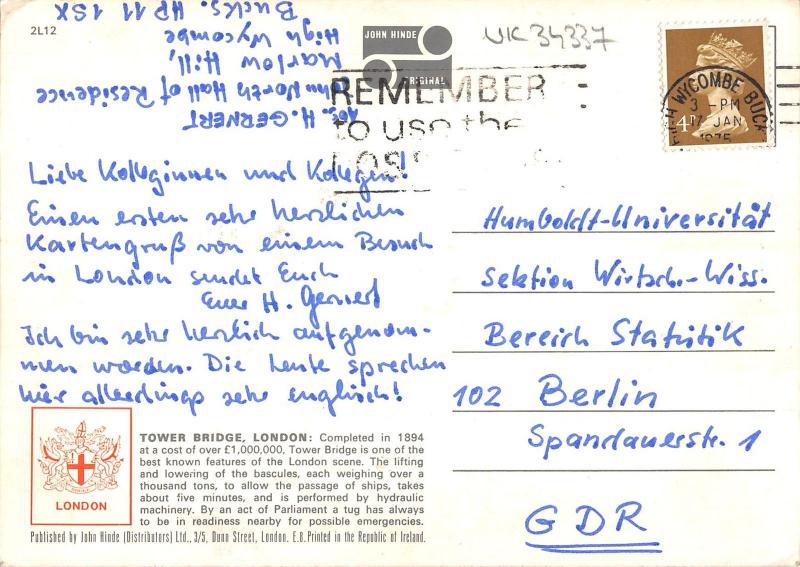 2L12
JOHN HINDE
ORIGINAL
UK 34337
H. GERNERT
John North Hall of Residence
Marlow Hill,
High Wycombe
Bucks. HP 11 1SX
REMEMBER
to use the
WYCOMBE BUCK
3 - PM
JAN
1975
4P
Liebe Kolleginnen und Kollegen!
Einen ersten sehr herzlichen
Kartengruß von einem Besuch
in London sendet Euch
Euer H. Gernert
Ich bin sehr herzlich aufgenom-
men worden. Die Leute sprechen
hier allerdings sehr englisch!
Humboldt-Universität
Sektion Wirtsch.-Wiss.
Bereich Statistik
102 Berlin
Spandauerstr. 1
GDR
LONDON
TOWER BRIDGE, LONDON: Completed in 1894
at a cost of over £1,000,000, Tower Bridge is one of the
best known features of the London scene. The lifting
and lowering of the bascules, each weighing over a
thousand tons, to allow the passage of ships, takes
about five minutes, and is performed by hydraulic
machinery. By an act of Parliament a tug has always
to be in readiness nearby for possible emergencies.
Published by John Hinde (Distributors) Ltd., 3/5, Dunn Street, London. E.8. Printed in the Republic of Ireland.